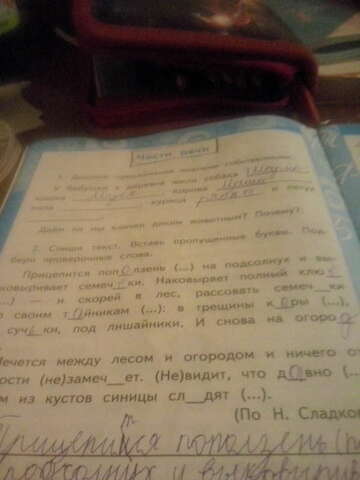 Части речи
1. Дополни предложения именами собственными.
У бабушки в деревне жили собака Шарик
кошка Мурка, корова Маша и петух
курица ряба
Дают ли мы клички диким животным? Почему?
2. Спиши текст. Вставь пропущенные буквы. Под-
бери проверочные слова.
Прицепится поп лзень (...) на подсолнух и вы-
ковыривает семеч ки. Наковыряет полный клю
(...) — и скорей в лес, рассовать семеч__ки
по своим т йникам (...): в трещины к ры (...),
суч ки, под лишайники. И снова на огоро д
Мечется между лесом и огородом и ничего от
ости (не)замеч__ет. (Не)видит, что д вно (...)
м из кустов синицы сл__дят (...).
(По Н. Сладко
Прицепится поползень (п
подсолнух и выковырив